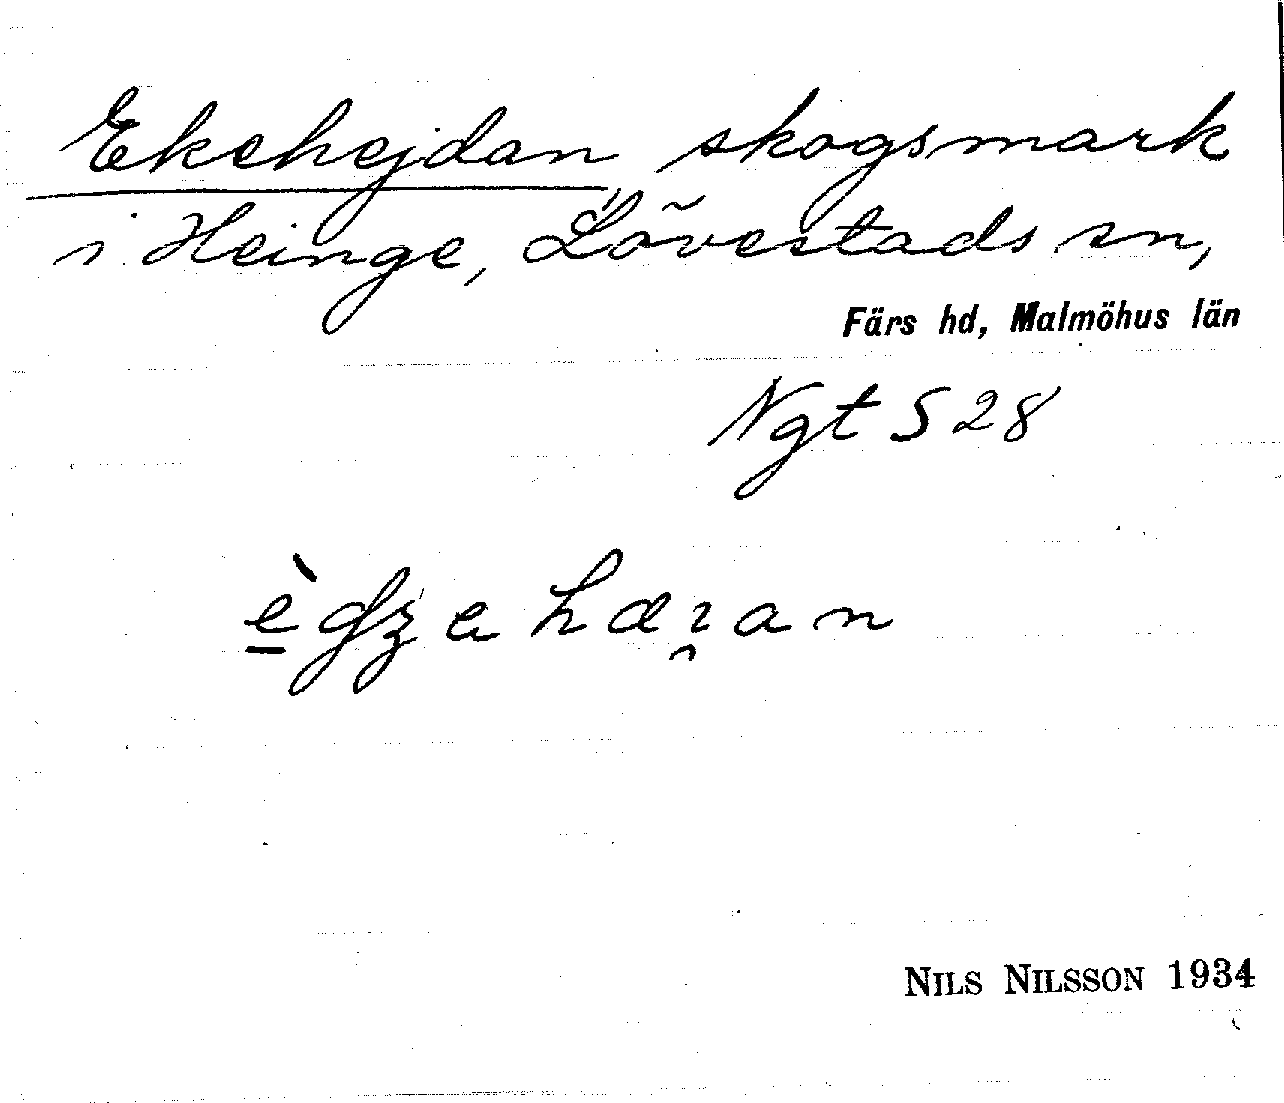 Ekehejdan skogsmark
i Heinge, Lövestads sn,
Färs hd, Malmöhus län
Ngt S 28
NILS NILSSON 1934